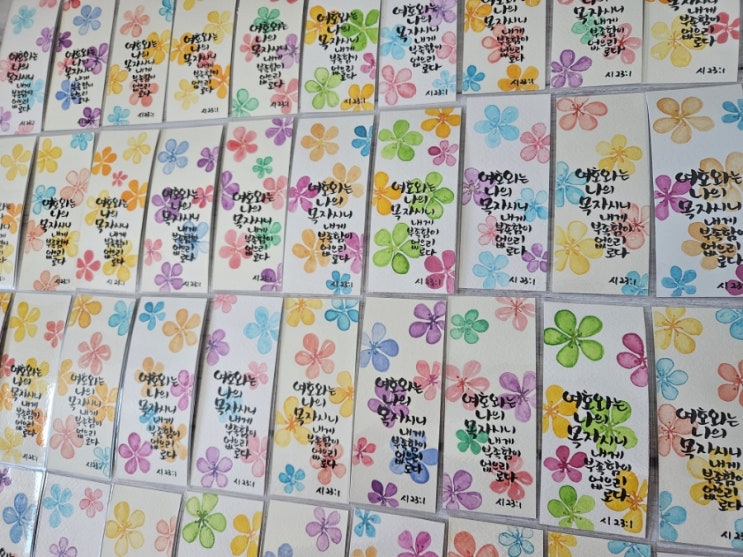 여호와는
나의
목자시니
내게
부족함이
없으리
로다
시 23:1